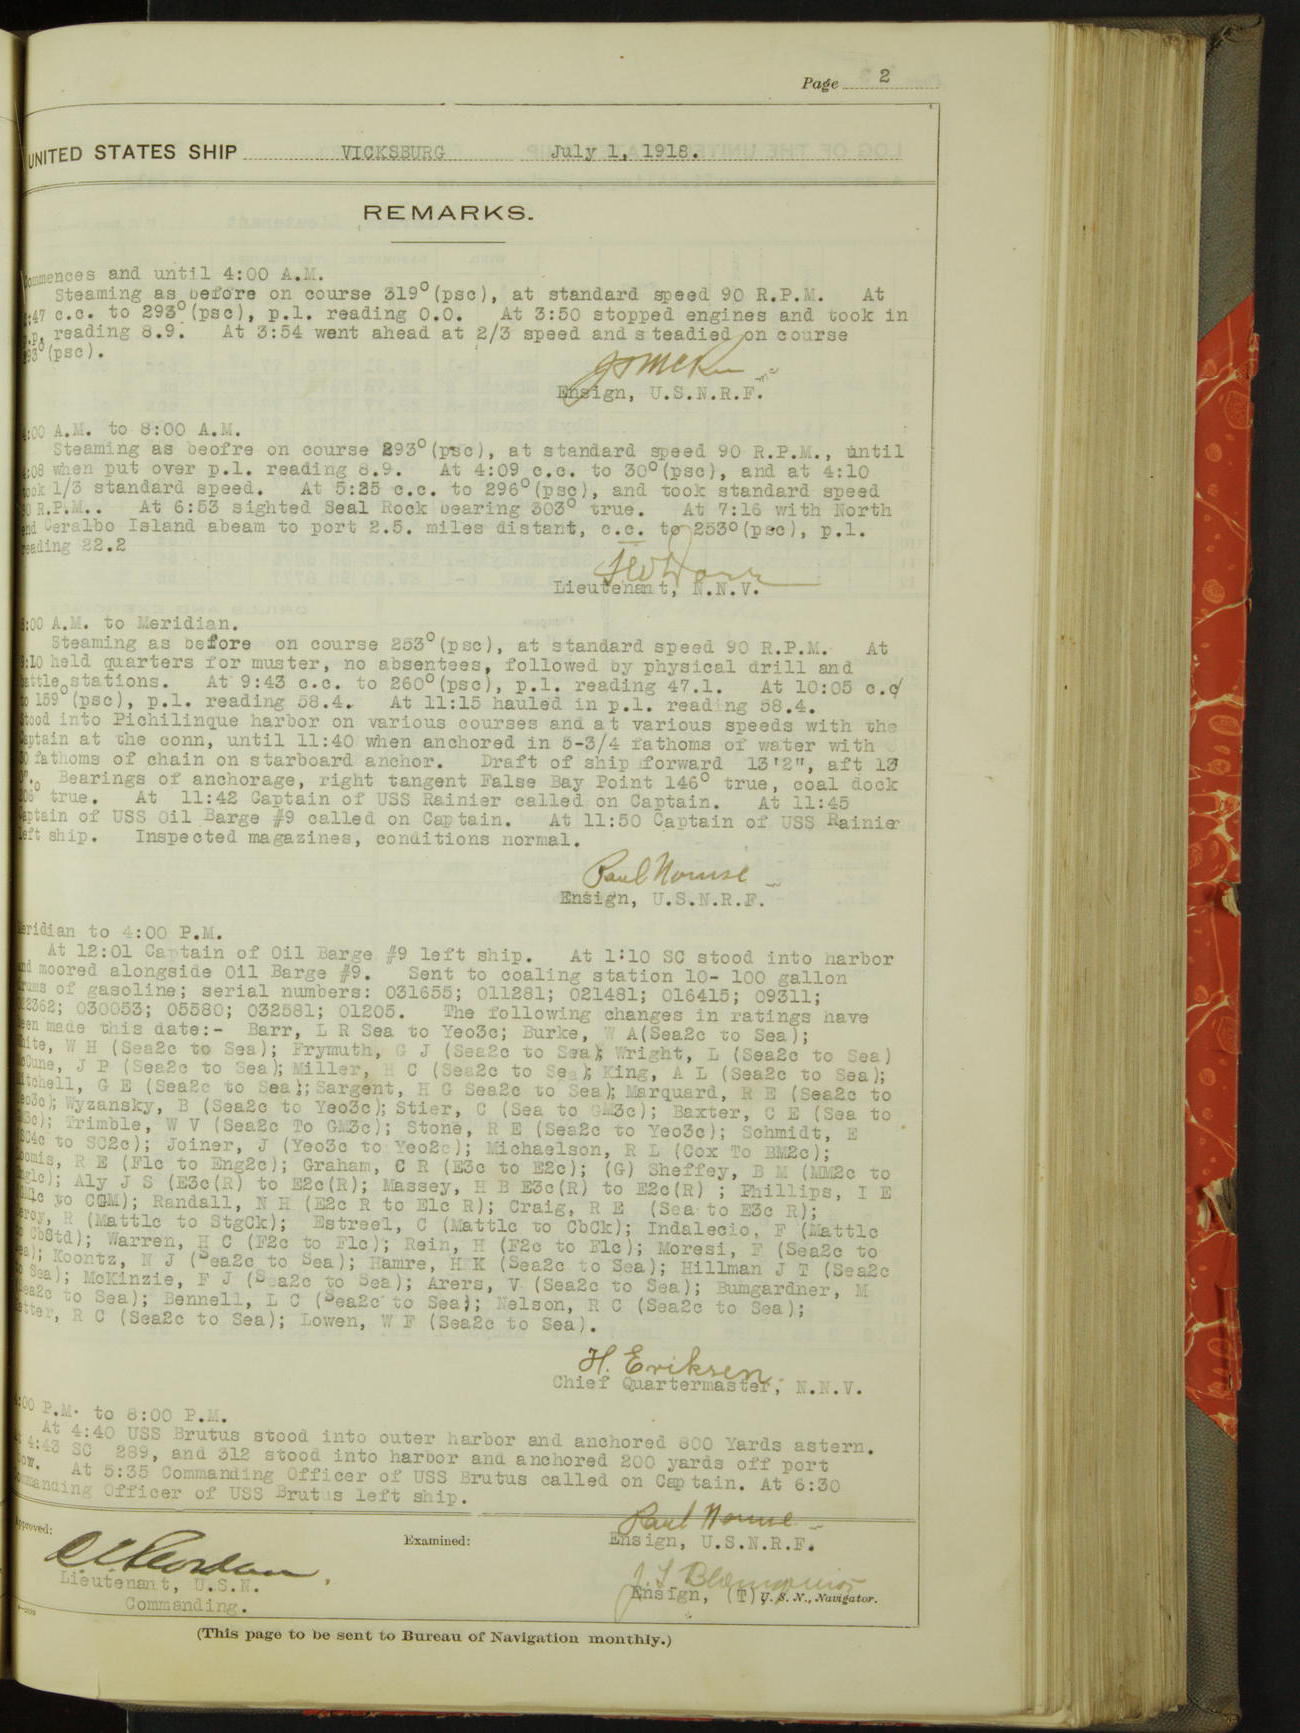 Page 2
UNITED STATES SHIP VICKSBURG July 1, 1918.
REMARKS.
Commences and until 4:00 A.M.
Steaming as before on course 319°(psc), at standard speed 90 R.P.M. At
:47 c.c. to 293°(psc), p.l. reading 0.0. At 3:50 stopped engines and took in
reading 8.9. At 3:54 went ahead at 2/3 speed and steadied on course
(psc).
Ensign, U.S.N.R.F.
:00 A.M. to 8:00 A.M.
Steaming as beofre on course 293°(psc), at standard speed 90 R.P.M., until
:08 when put over p.l. reading 8.9. At 4:09 c.c. to 30°(psc), and at 4:10
took 1/3 standard speed. At 5:25 c.c. to 296°(psc), and took standard speed
90 R.P.M.. At 6:53 sighted Seal Rock bearing 303° true. At 7:16 with North
end Ceralbo Island abeam to port 2.5. miles distant, c.c. to 253°(psc), p.l.
reading 22.2
Lieutenant, N.N.V.
:00 A.M. to Meridian.
Steaming as before on course 253°(psc), at standard speed 90 R.P.M. At
:10 held quarters for muster, no absentees, followed by physical drill and
battle stations. At 9:43 c.c. to 260°(psc), p.l. reading 47.1. At 10:05 c.c
to 159°(psc), p.l. reading 58.4. At 11:15 hauled in p.l. reading 58.4.
Stood into Pichilinque harbor on various courses and at various speeds with the
Captain at the conn, until 11:40 when anchored in 5-3/4 fathoms of water with
fathoms of chain on starboard anchor. Draft of ship forward 13'2", aft 13
Bearings of anchorage, right tangent False Bay Point 146° true, coal dock
true. At 11:42 Captain of USS Rainier called on Captain. At 11:45
Captain of USS Oil Barge #9 called on Captain. At 11:50 Captain of USS Rainier
left ship. Inspected magazines, conditions normal.
Paul Nourse
Ensign, U.S.N.R.F.
Meridian to 4:00 P.M.
At 12:01 Captain of Oil Barge #9 left ship. At 1:10 SC stood into harbor
and moored alongside Oil Barge #9. Sent to coaling station 10- 100 gallon
drums of gasoline; serial numbers: 031655; 011281; 021481; 016415; 09311;
2362; 030053; 05580; 032581; 01205. The following changes in ratings have
been made this date:- Barr, L R Sea to Yeo3c; Burke, W A(Sea2c to Sea);
White, W H (Sea2c to Sea); Frymuth, G J (Sea2c to Sea); Wright, L (Sea2c to Sea)
McCune, J P (Sea2c to Sea); Miller, H C (Sea2c to Sea); King, A L (Sea2c to Sea);
Mitchell, G E (Sea2c to Sea); Sargent, H G Sea2c to Sea); Marquard, R E (Sea2c to
Yeo3c); Wyzansky, B (Sea2c to Yeo3c); Stier, C (Sea to GM3c); Baxter, C E (Sea to
3c); Trimble, W V (Sea2c To GM3c); Stone, R E (Sea2c to Yeo3c); Schmidt, E
SC4c to SC2c); Joiner, J (Yeo3c to Yeo2c); Michaelson, R L (Cox To BM2c);
Loomis, R E (F1c to Eng2c); Graham, C R (E3c to E2c); (G) Sheffey, B M (MM2c to
Eng1c); Aly J S (E3c(R) to E2c(R); Massey, H B E3c(R) to E2c(R) ; Phillips, I E
to CGM); Randall, N H (E2c R to E1c R); Craig, R E (Sea to E3c R);
Leroy, R (Matt1c to StgCk); Estreel, C (Matt1c to CbCk); Indalecio, F (Matt1c
CbStd); Warren, H C (F2c to F1c); Rein, H (F2c to F1c); Moresi, F (Sea2c to
Sea); Koontz, N J (Sea2c to Sea); Hamre, H K (Sea2c to Sea); Hillman J T (Sea2c
to Sea); McKinzie, F J (Sea2c to Sea); Arers, V (Sea2c to Sea); Bumgardner, M
Sea2c to Sea); Bennell, L C (Sea2c to Sea); Nelson, R C (Sea2c to Sea);
R C (Sea2c to Sea); Lowen, W F (Sea2c to Sea).
H. Eriksen
Chief Quartermaster, N.N.V.
:00 P.M. to 8:00 P.M.
At 4:40 USS Brutus stood into outer harbor and anchored 800 Yards astern.
4:43 SC 289, and 312 stood into harbor and anchored 200 yards off port
bow. At 5:35 Commanding Officer of USS Brutus called on Captain. At 6:30
Commanding Officer of USS Brutus left ship.
Paul Nourse
Approved:
Examined:
Ensign, U.S.N.R.F.
Lieutenant, U.S.N.
Commanding.
Ensign, (T), U. S. N., Navigator.
(This page to be sent to Bureau of Navigation monthly.)